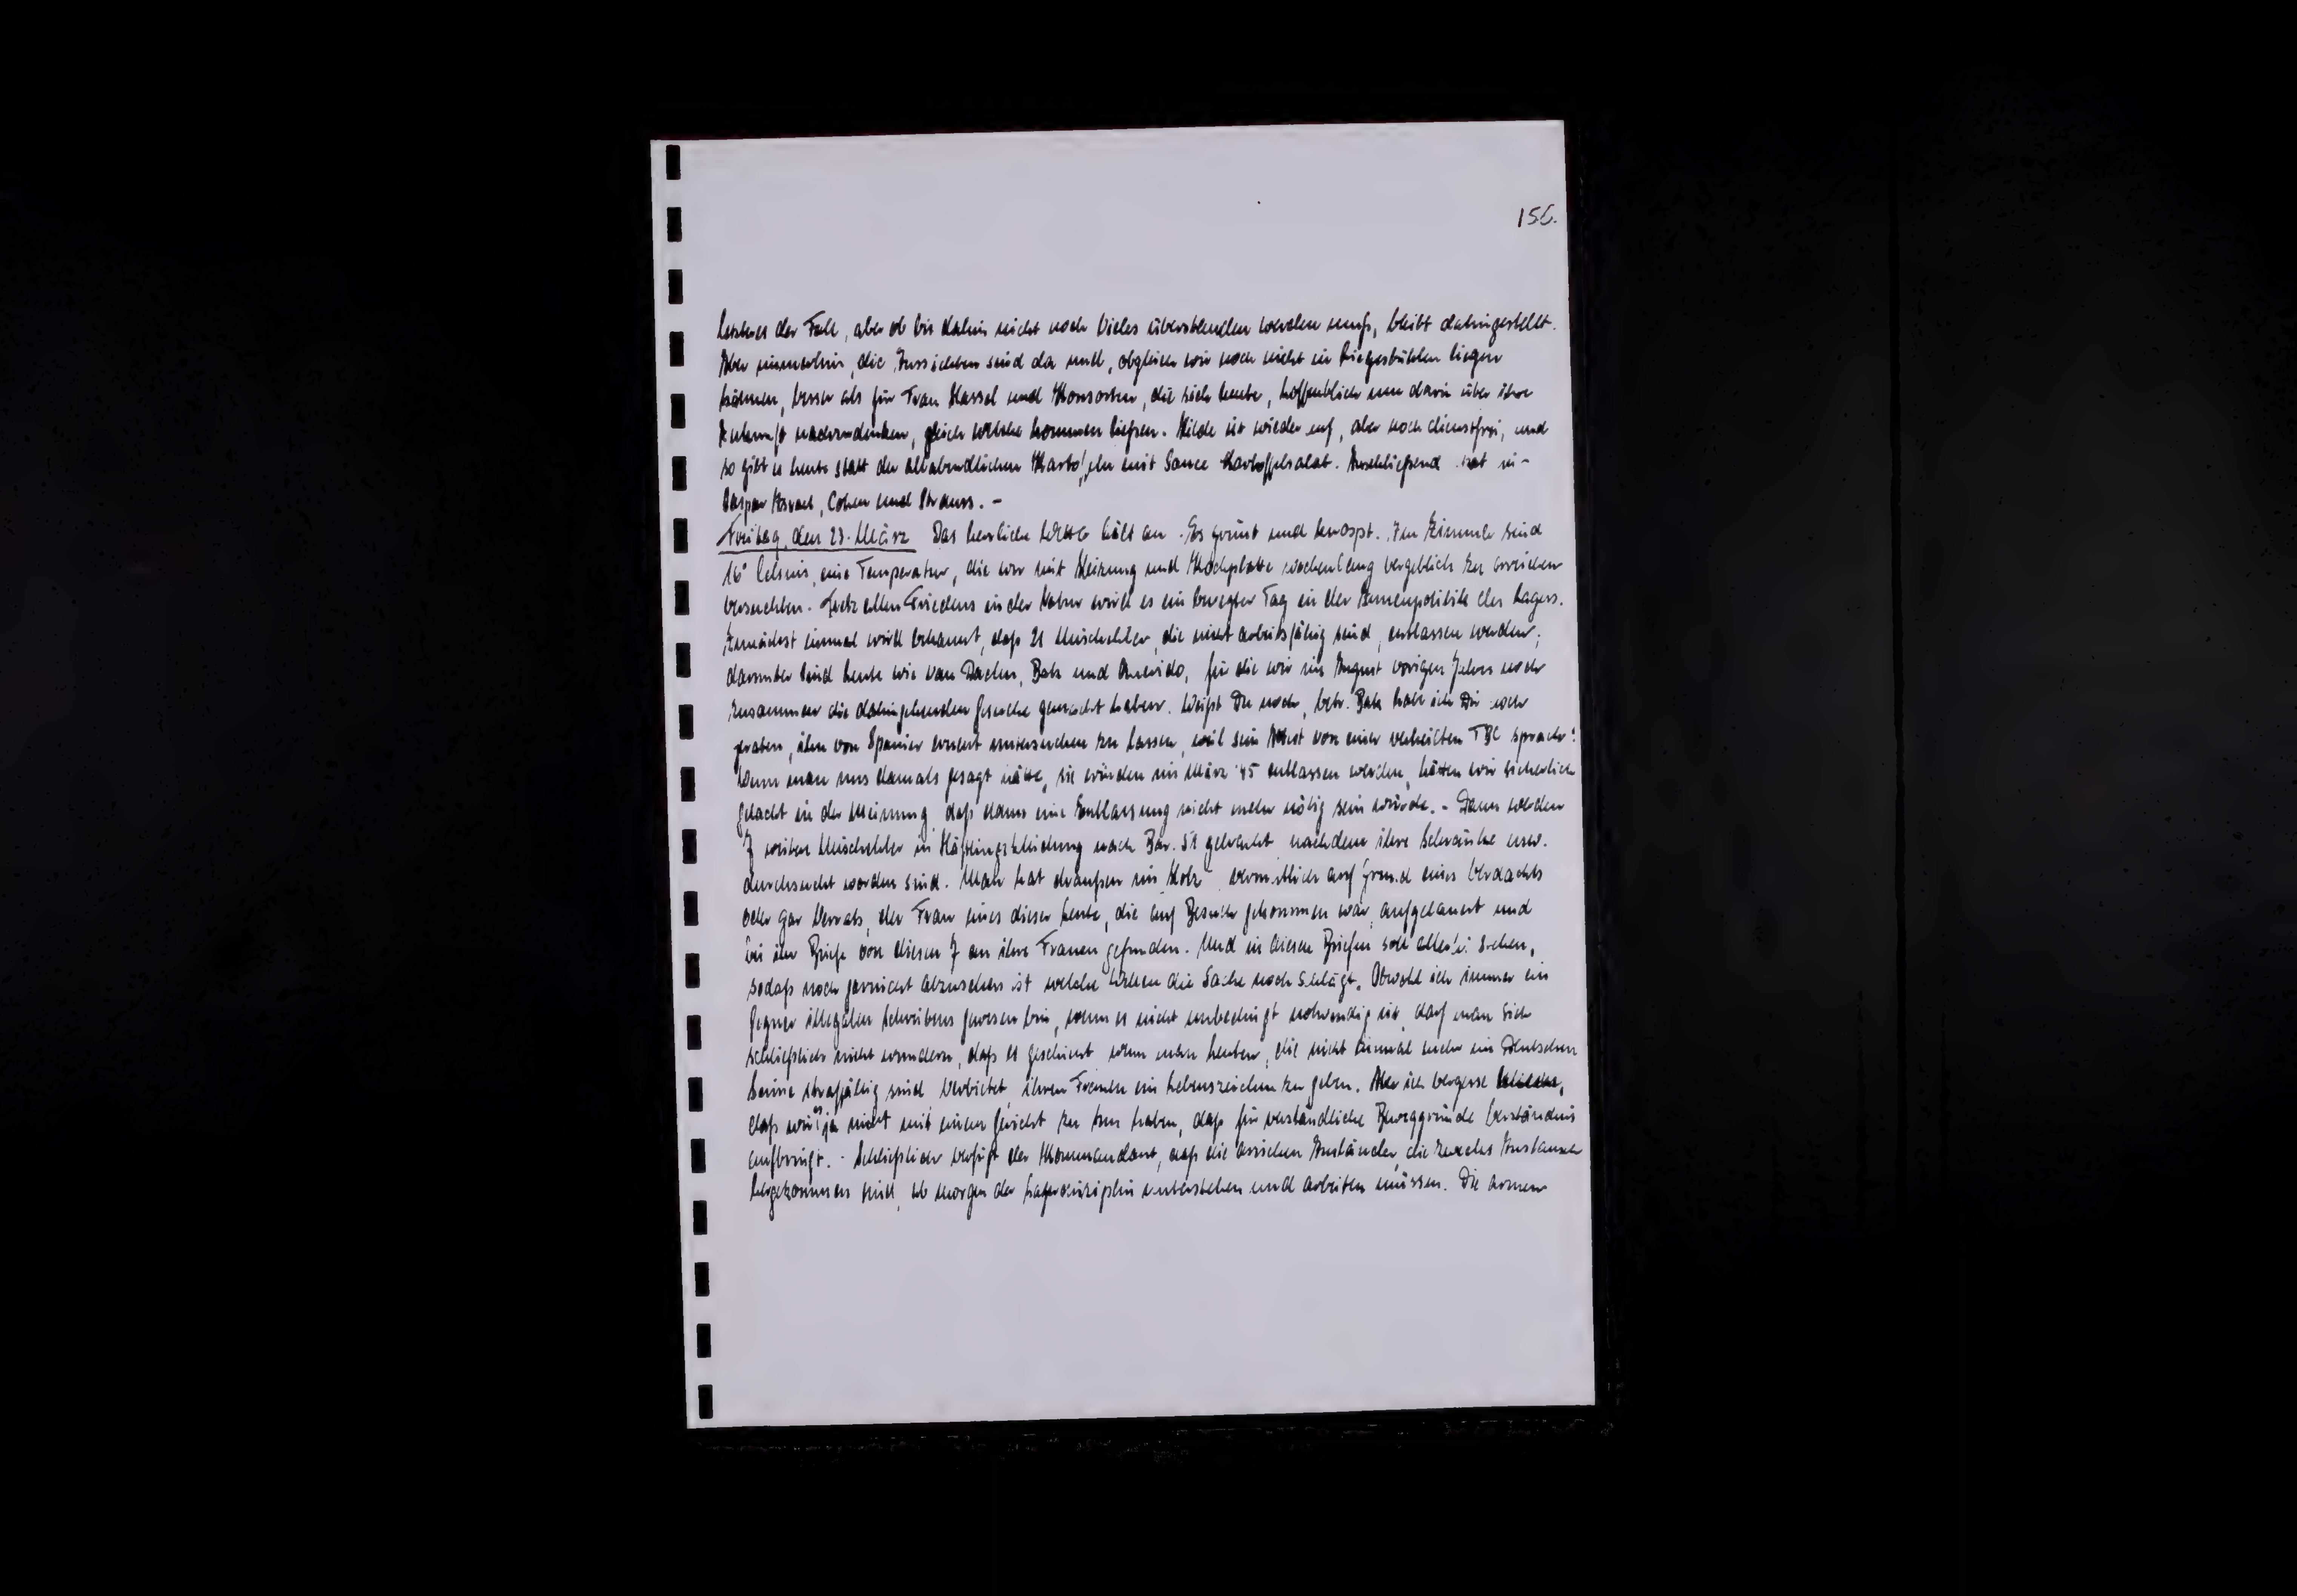 156.
letzteres der Fall, aber ob bis dahin nicht noch Vieles überstanden werden muß, bleibt dahingestellt.
Aber immerhin, die Aussichten sind da und, obgleich wir noch nicht in Liegestühlen liegen
können, besser als für Frau Hassel und Konsorten, die sich heute, hoffentlich um darin über ihre
Zukunft nachzudenken, gleich welche kommen ließen. Hilde ist wieder auf, aber noch dienstfrei, und
so gibt es heute statt der allabendlichen Kartoffeln mit Sauce Kartoffelsalat. Anschließend
Israel, Cohen und Strauss. -
Freitag, den 23. März Das herrliche Wetter hält an. Es grünt und knospt. Im Zimmer sind
16° Celsius, eine Temperatur, die wir mit Heizung und Kochplatte wochenlang vergeblich zu erreichen
versuchten. Trotz allen Friedens in der Natur wird es ein bewegter Tag in der Innenpolitik des Lagers.
Zunächst einmal wird bekannt, daß 21 Mischehler, die nicht arbeitsfähig sind, entlassen werden;
darunter sind Leute wie van Daelen, und für die wir im August vorigen Jahres noch
zusammen die dahingehenden Gesuche gemacht haben. Weißt Du noch, betr. habe ich Dir noch
geraten, ihn von Spanier erneut untersuchen zu lassen, weil sein von einer verheilten TBC sprach?
Wenn man uns damals gesagt hätte, sie würden im März '45 entlassen werden, hätten wir sicherlich
gelacht in der Meinung, daß dann eine Entlassung nicht mehr nötig sein würde. - Dann werden
7 weitere Mischehler in Häftlingskleidung nach Bar. 51 gebracht nachdem ihre Schränke usw.
durchsucht worden sind. Man hat draußen im Holz vermutlich auf Grund eines Verdachts
oder gar Verrats, der Frau eines dieser Leute, die auf Besuch gekommen war, aufgelauert und
bei ihr Briefe von diesen 7 an ihre Frauen gefunden. Und in diesen Briefen soll allerlei stehen,
sodaß noch garnicht abzusehen ist welche Wellen die Sache noch schlägt. Obwohl ich immer ein
Gegner illegalen Schreibens gewesen bin, wenn es nicht unbedingt notwendig ist, darf man sich
schließlich nicht wundern, daß es geschieht wenn man Leuten, die nicht einmal mehr im Deutschen
Sinne straffällig sind verbietet, ihren Frauen ein Lebenszeichen zu geben. Aber ich vergesse
daß wir's ja nicht mit einem Gericht zu tun haben, daß für verständliche Beweggründe Verständnis
aufbringt. - Schließlich verfügt der Kommandant, daß die arischen Ausländer, die zwecks Austausch
hergekommen sind, ab morgen der Lagerdisziplin unterstehen und arbeiten müssen. Die armen